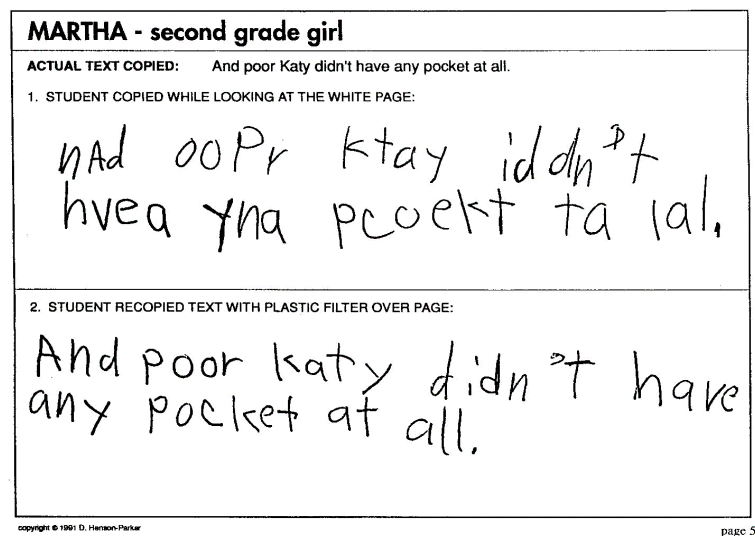 MARTHA - second grade girl
ACTUAL TEXT COPIED: And poor Katy didn't have any pocket at all.
1. STUDENT COPIED WHILE LOOKING AT THE WHITE PAGE:
nAd ooPr ktay iddn't
hvea yna pcoekt ta lal.
2. STUDENT RECOPIED TEXT WITH PLASTIC FILTER OVER PAGE:
And poor katy didn't have
any pocket at all.
copyright © 1991 D. Henson-Parker
page 5